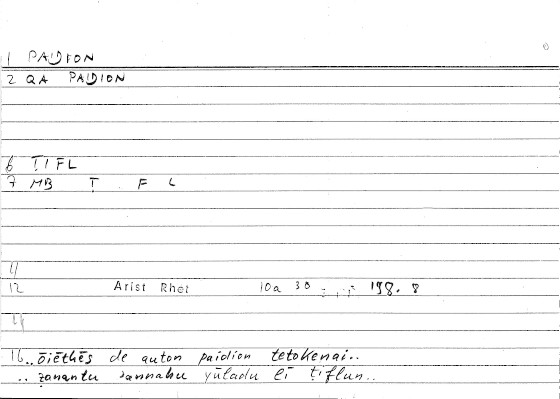 1 PAIDION
2 QA PAIDION
6 ṬIFL
7 MB Ṭ F L
11
12 Arist Rhet 10a 30 198.8
14
16..ōiēthēs de auton paidion tetokenai..
.. ẓanantu ʾannahu yūladu lī ṭiflun..